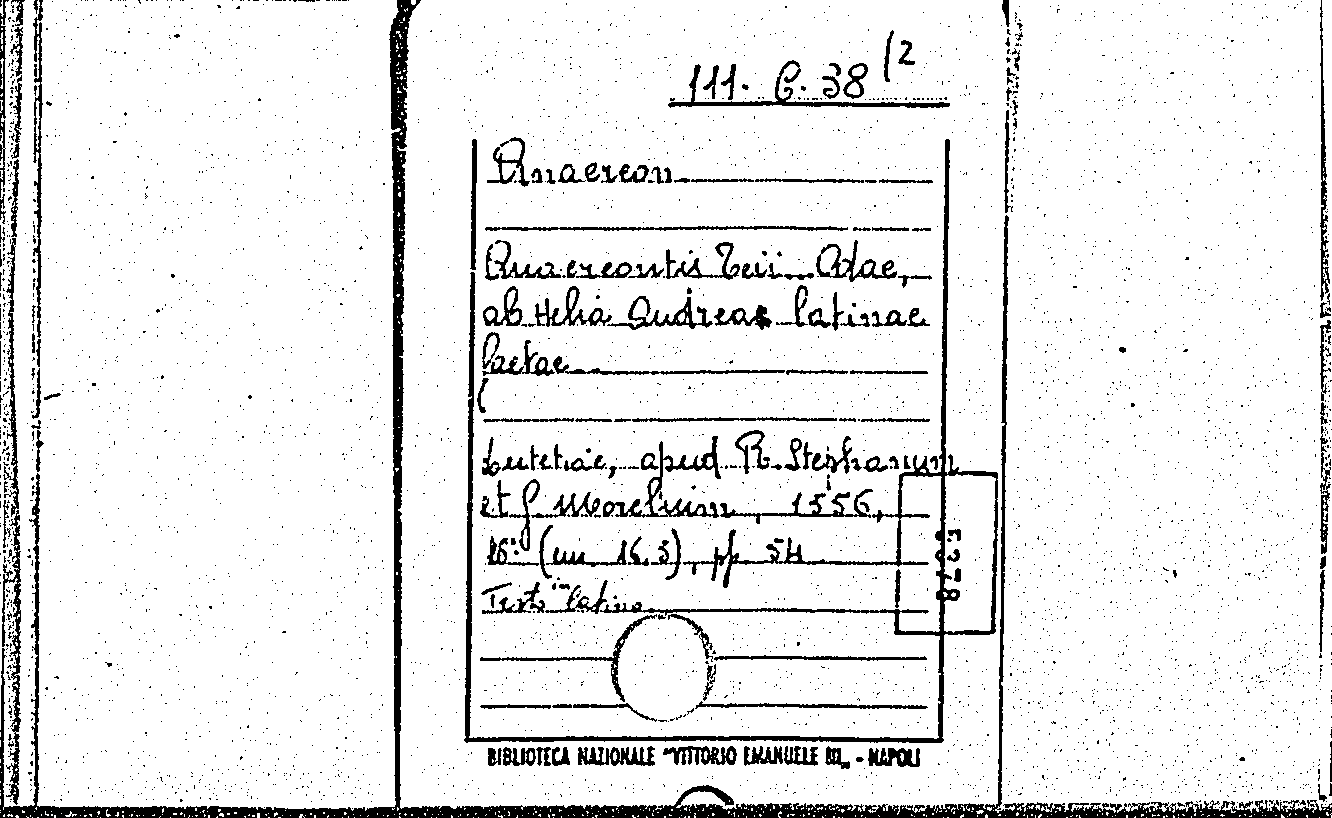 111. C. 38 /2
Anacreon
Anacreontis Teii Odae,
ab Helia Andrea latinae
factae
(
Lutetiae, apud R. Stephanum
et G. Morelium, 1556,
16º (cm. 16.5), pp. 54
Testo in latino
BIBLIOTECA NAZIONALE "VITTORIO EMANUELE III„ - NAPOLI